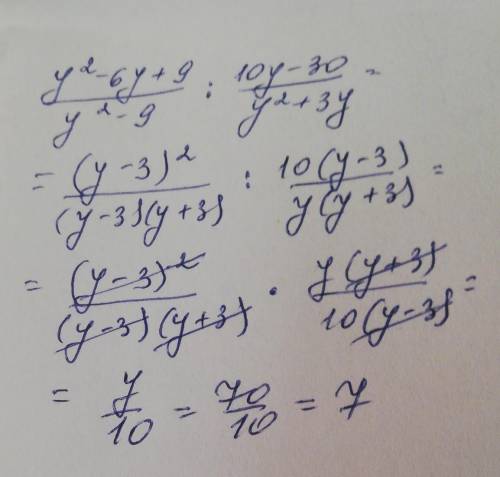 (y² - 6y + 9)/(y² - 9) : (10y - 30)/(y² + 3y) =
= (y - 3)²/((y - 3)(y + 3)) : 10(y - 3)/(y(y + 3)) =
= (y - 3)²/((y - 3)(y + 3)) · y(y + 3)/(10(y - 3)) =
= y/10 = 70/10 = 7